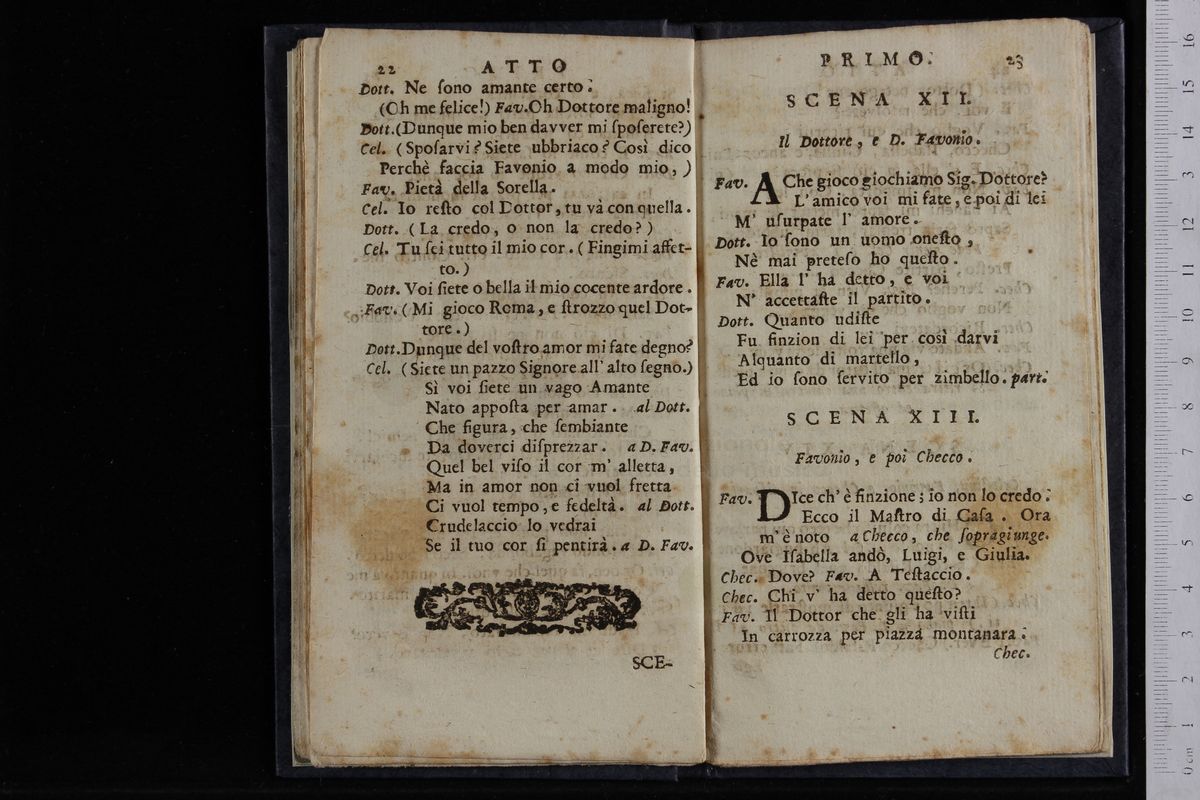 22 ATTO
Dott. Ne ſono amante certo.
(Oh me felice!) Fav. Oh Dottore maligno!
Dott. (Dunque mio ben davver mi ſpoſerete?)
Cel. (Spoſarvi? Siete ubbriaco? Così dico
Perchè faccia Favonio a modo mio,)
Fav. Pietà della Sorella.
Cel. Io reſto col Dottor, tu và con quella.
Dott. (La credo, o non la credo?)
Cel. Tu ſei tutto il mio cor. (Fingimi affet-
to.)
Dott. Voi ſiete o bella il mio cocente ardore.
Fav. (Mi gioco Roma, e ſtrozzo quel Dot-
tore.)
Dott. Dunque del voſtro amor mi fate degno?
Cel. (Siete un pazzo Signore all' alto ſegno.)
Sì voi ſiete un vago Amante
Nato appoſta per amar. al Dott.
Che figura, che ſembiante
Da doverci diſprezzar. a D. Fav.
Quel bel viſo il cor m' alletta,
Ma in amor non ci vuol fretta
Ci vuol tempo, e fedeltà. al Dott.
Crudelaccio lo vedrai
Se il tuo cor ſi pentirà. a D. Fav.
SCE-
PRIMO. 23
SCENA XII.
Il Dottore, e D. Favonio.
Fav. A Che gioco giochiamo Sig. Dottore?
L' amico voi mi fate, e poi di lei
M' uſurpate l' amore.
Dott. Io ſono un uomo oneſto,
Nè mai preteſo ho queſto.
Fav. Ella l' ha detto, e voi
N' accettaſte il partito.
Dott. Quanto udiſte
Fu finzion di lei per così darvi
Alquanto di martello,
Ed io ſono ſervito per zimbello. part.
SCENA XIII.
Favonio, e poi Checco.
Fav. DIce ch' è finzione; io non lo credo.
Ecco il Maſtro di Caſa. Ora
m' è noto a Checco, che ſopragiunge.
Ove Iſabella andò, Luigi, e Giulia.
Chec. Dove? Fav. A Teſtaccio.
Chec. Chi v' ha detto queſto?
Fav. Il Dottor che gli ha viſti
In carrozza per piazza montanara.
Chec.
0 cm 1 2 3 4 5 6 7 8 9 10 11 12 13 14 15 16